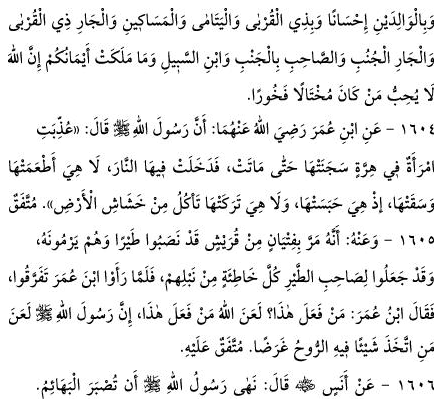 وَبِالْوَالِدَيْنِ إِحْسَانًا وَبِذِي الْقُرْبَى وَالْيَتَامَى وَالْمَسَاكِينِ وَالْجَارِ ذِي الْقُرْبَى
وَالْجَارِ الْجُنُبِ وَالصَّاحِبِ بِالْجَنْبِ وَابْنِ السَّبِيلِ وَمَا مَلَكَتْ أَيْمَانُكُمْ إِنَّ اللهَ
لَا يُحِبُّ مَنْ كَانَ مُخْتَالًا فَخُورًا.
١٦٠٤ - عَنِ ابْنِ عُمَرَ رَضِيَ اللهُ عَنْهُمَا: أَنَّ رَسُولَ اللهِ ﷺ قَالَ: «عُذِّبَتِ
امْرَأَةٌ فِي هِرَّةٍ سَجَنَتْهَا حَتَّى مَاتَتْ، فَدَخَلَتْ فِيهَا النَّارَ، لَا هِيَ أَطْعَمَتْهَا
وَسَقَتْهَا، إِذْ هِيَ حَبَسَتْهَا، وَلَا هِيَ تَرَكَتْهَا تَأْكُلُ مِنْ خَشَاشِ الْأَرْضِ». مُتَّفَقٌ
١٦٠٥ - وَعَنْهُ: أَنَّهُ مَرَّ بِفِتْيَانٍ مِنْ قُرَيْشٍ قَدْ نَصَبُوا طَيْرًا وَهُمْ يَرْمُونَهُ،
وَقَدْ جَعَلُوا لِصَاحِبِ الطَّيْرِ كُلَّ خَاطِئَةٍ مِنْ نَبْلِهِمْ، فَلَمَّا رَأَوُا ابْنَ عُمَرَ تَفَرَّقُوا،
فَقَالَ ابْنُ عُمَرَ: مَنْ فَعَلَ هٰذَا؟ لَعَنَ اللهُ مَنْ فَعَلَ هٰذَا، إِنَّ رَسُولَ اللهِ ﷺ لَعَنَ
مَنِ اتَّخَذَ شَيْئًا فِيهِ الرُّوحُ غَرَضًا. مُتَّفَقٌ عَلَيْهِ.
١٦٠٦ - عَنْ أَنَسٍ ﷺ قَالَ: نَهَى رَسُولُ اللهِ ﷺ أَنْ تُصْبَرَ الْبَهَائِمُ.